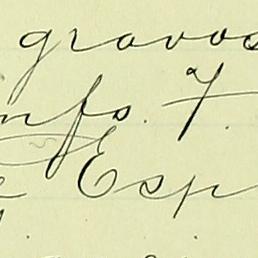 gravos
nfs. 7.
Esp